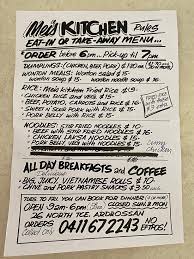 Mei's KITCHEN Rules
EAT-IN OR TAKE-AWAY MENU...
ORDER before 6pm... Pick-up til 7pm
DUMPLINGS: (CHICKEN, BEEF, PORK)
WONTON MEALS: Wonton salad $15-
Wonton soup $15-
RICE: Mei's Kitchen Fried Rice $15-
Chicken curry and Rice $15-
BEEF, POTATO, Carrots and Rice $15-
Sweet n Sour Pork with Rice $15-
with Rice $15-
NOODLES: Stir Fried Noodles $15-
BEEF with Stir Fried Noodles $15-
Chicken Laksa Noodles $15-
PORK with Noodles $15-
Curry Chicken
ALL DAY BREAKFASTS and COFFEE
BIG, JUICY, VIETNAMESE ROLLS $10-
CHIVE and PORK PASTRY SNACKS $3.50 each
TUES TO FRI. YOU CAN BOOK FOR DINNER
OPEN 9am-6pm. CLOSED SUN & MON
26 NORTH TCE ARDROSSAN
ORDERS 0411672243 NO EFTPOS!